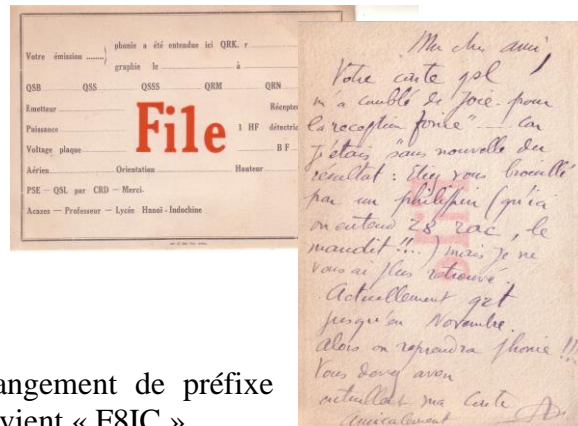 Votre émission ....... } phonie a été entendue ici QRK. r
graphie le à
QSB QSS QSSS QRM QRN
Emetteur Récepteu
Puissance 1 HF détectric
Voltage plaque B F
File
Aérien Orientation Hauteur
PSE — QSL par CRD — Merci-
Acazes — Professeur — Lycée Hanoï - Indochine
Mon cher ami,
Votre carte qsl
m'a comblé de joie pour
la reception "fonie" — Car
j'étais sans nouvelle du
resultat : Etiez vous brouillé
par un philipin (qu'ici
on entend 28 rac, le
maudit !!..) mais je ne
vous ai plus retrouvé.
Actuellement qrt
jusqu'en Novembre.
Alors on reprendra phonie !!!
Vous devez avoir
ma carte
amicalement
angement de préfixe
vient « F8IC »